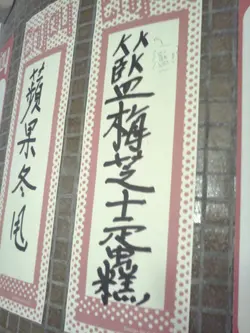 籃梅芝士蛋糕
蘋果冬甩